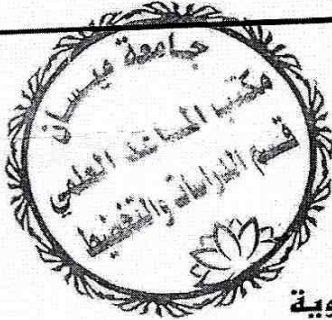 جامعة ميسان
مكتب المساعد العلمي
قسم الدراسات والتخطيط
وية